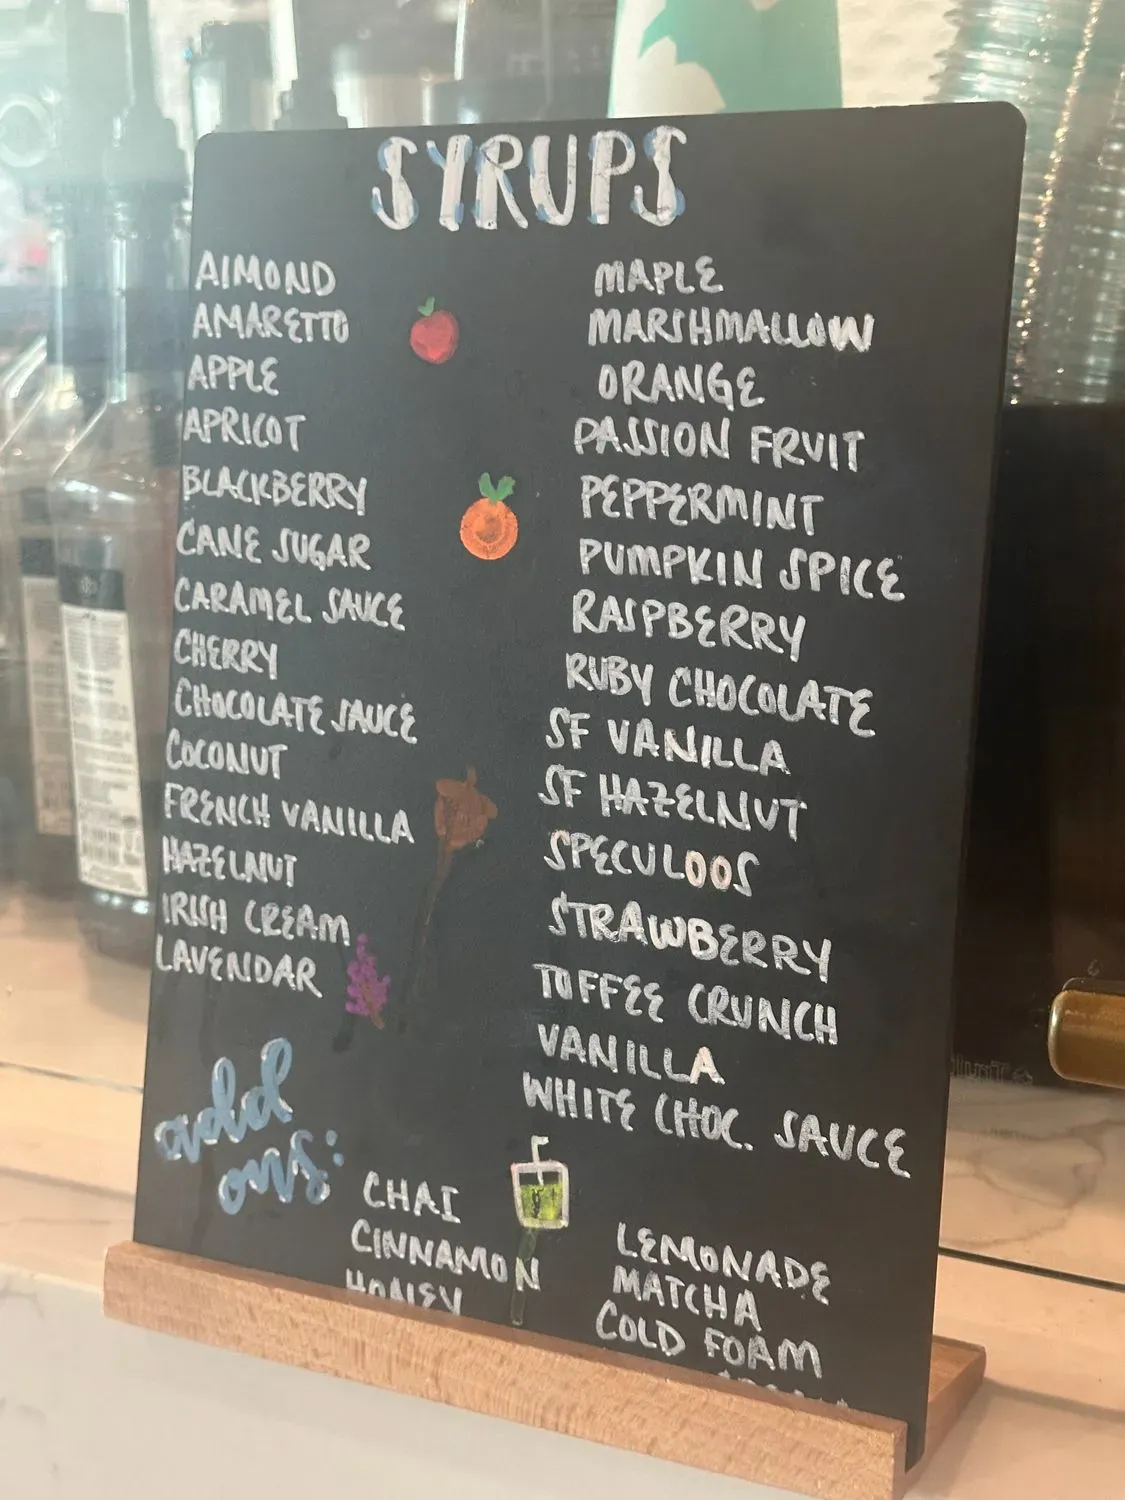 SYRUPS
ALMOND
AMARETTO
APPLE
APRICOT
BLACKBERRY
CANE SUGAR
CARAMEL SAUCE
CHERRY
CHOCOLATE SAUCE
COCONUT
FRENCH VANILLA
HAZELNUT
IRISH CREAM
LAVENDAR
MAPLE
MARSHMALLOW
ORANGE
PASSION FRUIT
PEPPERMINT
PUMPKIN SPICE
RASPBERRY
RUBY CHOCOLATE
SF VANILLA
SF HAZELNUT
SPECULOOS
STRAWBERRY
TOFFEE CRUNCH
VANILLA
WHITE CHOC. SAUCE
add
ons:
CHAI
CINNAMON
HONEY
LEMONADE
MATCHA
COLD FOAM